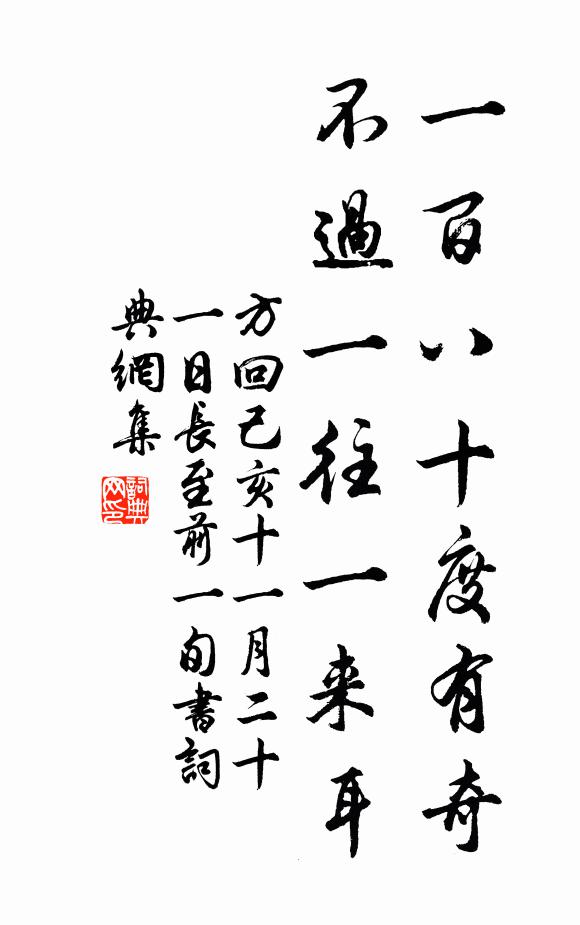 一百八十度有奇
不過一往一来耳
方回己亥十一月二十
一日長至前一旬書詞
典網集
詞典
网印